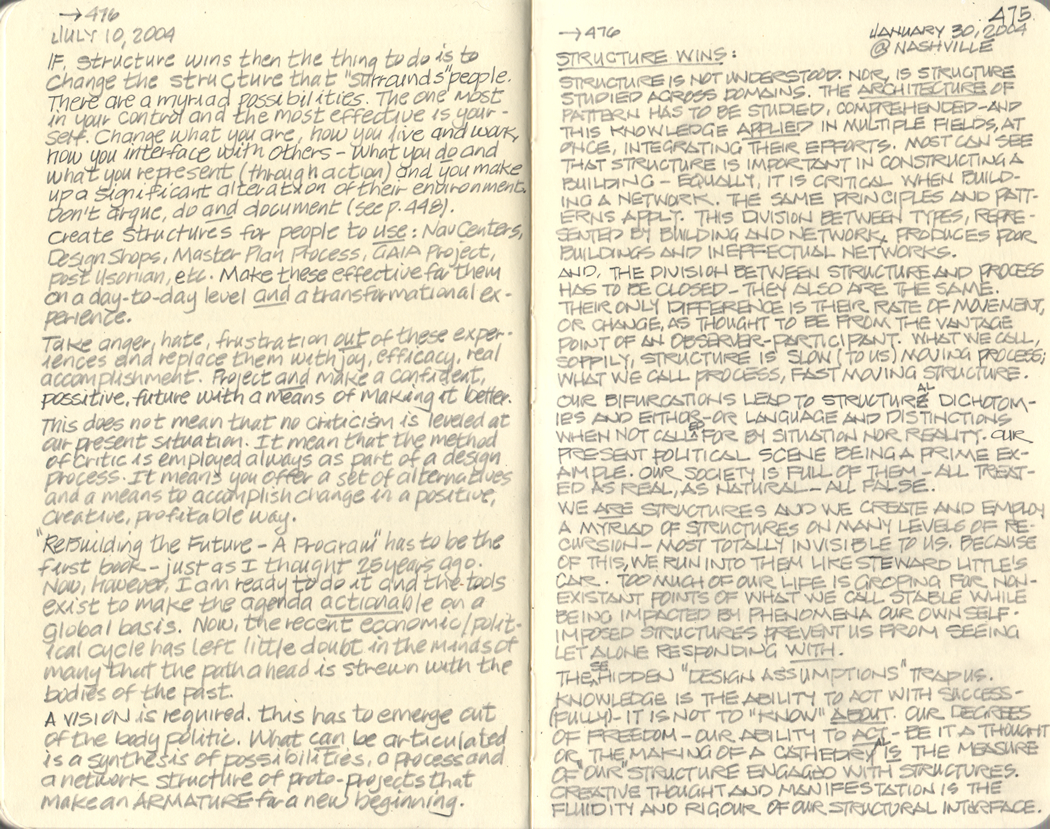 →476
JULY 10, 2004
IF, structure wins then the thing to do is to
change the structure that "surrounds" people.
There are a myriad possibilities. The one most
in your control and the most effective is your-
self. Change what you are, how you live and work,
how you interface with others - what you do and
what you represent (through action) and you make
up a significant alteration of their environment.
Don't argue, do and document (see p. 448).
Create structures for people to use: NavCenters,
DesignShops, Master Plan Process, GAIA Project,
post Usonian, etc. Make these effective for them
on a day-to-day level and a transformational ex-
perience.
Take anger, hate, frustration out of these exper-
iences and replace them with joy, efficacy, real
accomplishment. Project and make a confident,
possitive, future with a means of making it better.
This does not mean that no criticism is leveled at
our present situation. It mean that the method
of critic is employed always as part of a design
process. It means you offer a set of alternatives
and a means to accomplish change in a positive,
creative, profitable way.
"ReBuilding the Future - A Program" has to be the
first book - just as I thought 25 years ago.
Now, however, I am ready to do it and the tools
exist to make the agenda actionable on a
global basis. Now, the recent economic/polit-
ical cycle has left little doubt in the minds of
many that the path ahead is strewn with the
bodies of the past.
A VISION is required. This has to emerge out
of the body politic. What can be articulated
is a synthesis of possibilities, a process and
a network structure of proto-projects that
make an ARMATURE for a new beginning.
475
→476
JANUARY 30, 2004
@ NASHVILLE
STRUCTURE WINS:
STRUCTURE IS NOT UNDERSTOOD. NOR, IS STRUCTURE
STUDIED ACROSS DOMAINS. THE ARCHITECTURE OF
PATTERN HAS TO BE STUDIED, COMPREHENDED - AND
THIS KNOWLEDGE APPLIED IN MULTIPLE FIELDS, AT
ONCE, INTEGRATING THEIR EFFORTS. MOST CAN SEE
THAT STRUCTURE IS IMPORTANT IN CONSTRUCTING A
BUILDING - EQUALLY, IT IS CRITICAL WHEN BUILD-
ING A NETWORK. THE SAME PRINCIPLES AND PATT-
ERNS APPLY. THIS DIVISION BETWEEN TYPES, REPRE-
SENTED BY BUILDING AND NETWORK, PRODUCES POOR
BUILDINGS AND INEFFECTUAL NETWORKS.
AND, THE DIVISION BETWEEN STRUCTURE AND PROCESS
HAS TO BE CLOSED - THEY ALSO ARE THE SAME.
THEIR ONLY DIFFERENCE IS THEIR RATE OF MOVEMENT,
OR CHANGE, AS THOUGHT TO BE FROM THE VANTAGE
POINT OF AN OBSERVER-PARTICIPANT. WHAT WE CALL,
SOPPILY, STRUCTURE IS SLOW (TO US) MOVING PROCESS;
WHAT WE CALL PROCESS, FAST MOVING STRUCTURE.
OUR BIFURCATIONS LEAD TO STRUCTURE^AL DICHOTOM-
IES AND EITHOR-OR LANGUAGE AND DISTINCTIONS
WHEN NOT CALL^ED FOR BY SITUATION NOR REALITY. OUR
PRESENT POLITICAL SCENE BEING A PRIME EX-
AMPLE. OUR SOCIETY IS FULL OF THEM - ALL TREAT-
ED AS REAL, AS NATURAL - ALL FALSE.
WE ARE STRUCTURES AND WE CREATE AND EMPLOY
A MYRIAD OF STRUCTURES ON MANY LEVELS OF RE-
CURSION - MOST TOTALLY INVISIBLE TO US. BECAUSE
OF THIS, WE RUN INTO THEM LIKE STEWARD LITTLE'S
CAR. TOO MUCH OF OUR LIFE IS GROPING FOR NON-
EXISTANT POINTS OF WHAT WE CALL STABLE WHILE
BEING IMPACTED BY PHENOMENA OUR OWN SELF-
IMPOSED STRUCTURES PREVENT US FROM SEEING
LET ALONE RESPONDING WITH.
THE^SE HIDDEN "DESIGN ASSUMPTIONS" TRAP US.
KNOWLEDGE IS THE ABILITY TO ACT WITH SUCCESS-
(FULLY) - IT IS NOT TO "KNOW" ABOUT. OUR DEGREES
OF FREEDOM - OUR ABILITY TO ACT - BE IT A THOUGHT
OR THE MAKING OF A CATHEDR^AL IS THE MEASURE
OF "OUR" STRUCTURE ENGAGED WITH STRUCTURES.
CREATIVE THOUGHT AND MANIFESTATION IS THE
FLUIDITY AND RIGOUR OF OUR STRUCTURAL INTERFACE.